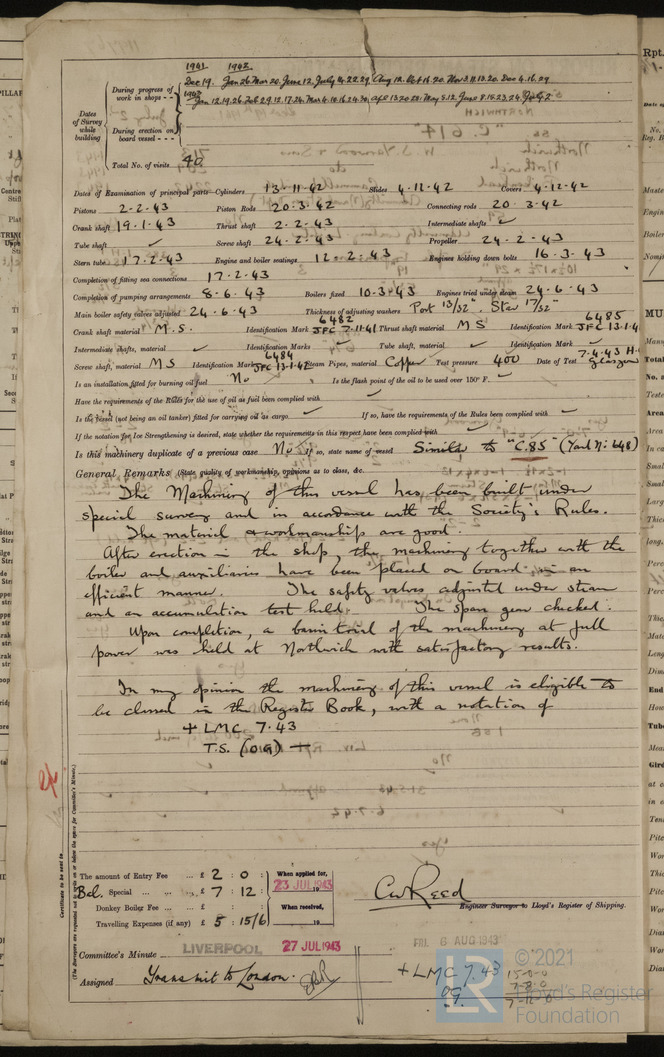 1941 1942
Dec 19. Jan 26. Mar 20. June 12. July 14. 22. 29. Aug 12. Oct 16. 20. Nov 3. 11. 13. 20. Dec 4. 16. 29
1943
Jan 12. 19. 26. Feb 2. 9. 12. 17. 24. Mar 4. 10. 16. 24. 30. Apl 13. 20. 28. May 5. 12. June 8. 15. 23. 24. July 2
Dates of Survey while building
During progress of work in shops - -
During erection on board vessel - - -
Total No. of visits 40
Dates of Examination of principal parts—Cylinders 13-11-42 Slides 4-12-42 Covers 4-12-42
Pistons 2-2-43 Piston Rods 20-3-42 Connecting rods 20-3-42
Crank shaft 19-1-43 Thrust shaft 2-2-43 Intermediate shafts ✓
Tube shaft ✓ Screw shaft 24-2-43 Propeller 24-2-43
Stern tube 17-2-43 Engine and boiler seatings 12-2-43 Engines holding down bolts 16-3-43
Completion of fitting sea connections 17-2-43
Completion of pumping arrangements 8-6-43 Boilers fixed 10-3-43 Engines tried under steam 24-6-43
Main boiler safety valves adjusted 24-6-43 Thickness of adjusting washers Port 13/32" Star 17/32"
Crank shaft material M.S. Identification Mark 6482 JFC 7-11-41 Thrust shaft material MS Identification Mark 6485 JFC 13-1-4
Intermediate shafts, material ✓ Identification Marks ✓ Tube shaft, material ✓ Identification Mark ✓
Screw shaft, material MS Identification Mark 6484 JFC 13-1-42 Steam Pipes, material Copper Test pressure 400 Date of Test 7-4-43 H. Glasgow
Is an installation fitted for burning oil fuel No Is the flash point of the oil to be used over 150° F. ✓
Have the requirements of the Rules for the use of oil as fuel been complied with ✓
Is the vessel (not being an oil tanker) fitted for carrying oil as cargo ✓ If so, have the requirements of the Rules been complied with ✓
If the notation for Ice Strengthening is desired, state whether the requirements in this respect have been complied with ✓
Is this machinery duplicate of a previous case No If so, state name of vessel Similar to "C.85" (Yard No: 648)
General Remarks (State quality of workmanship, opinions as to class, &c.
The Machinery of this vessel has been built under
special survey and in accordance with the Society's Rules.
The material & workmanship are good.
After erection in the ship, the machinery together with the
boiler and auxiliaries have been placed on board in an
efficient manner. The safety valves adjusted under steam
and an accumulation test held. The spare gear checked.
Upon completion, a basin trial of the machinery at full
power was held at Northwich with satisfactory results.
In my opinion the machinery of this vessel is eligible to
be classed in the Register Book, with a notation of
+ LMC 7.43
T.S. (OG)
Certificate to be sent to
(The Surveyors are requested not to write on or below the space for Committee's Minute.)
The amount of Entry Fee ... £ 2 : 0 : When applied for,
Bal. Special ... ... £ 7 : 12 : 23 JUL 1943
Donkey Boiler Fee ... £ : : When received,
Travelling Expenses (if any) £ 5 : 15/6 19
CW Reed
Engineer Surveyor to Lloyd's Register of Shipping.
Committee's Minute LIVERPOOL 27 JUL 1943
FRI. 6 AUG 1943
Assigned Transmit to London.
+ LMC 7.43
OG.
15-0-0
7-8-0
7-12-0
© 2021
Lloyd's Register
Foundation